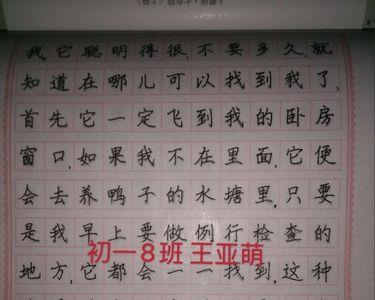 我,它聪明得很,不要多久,就
知道在哪儿可以找到我了,
首先它一定飞到我的卧房
窗口,如果我不在里面,它便
会去养鸭子的水塘里,只要
是我早上要做例行检查的
初一8班 王亚萌
地方,它都会一一找到,这种